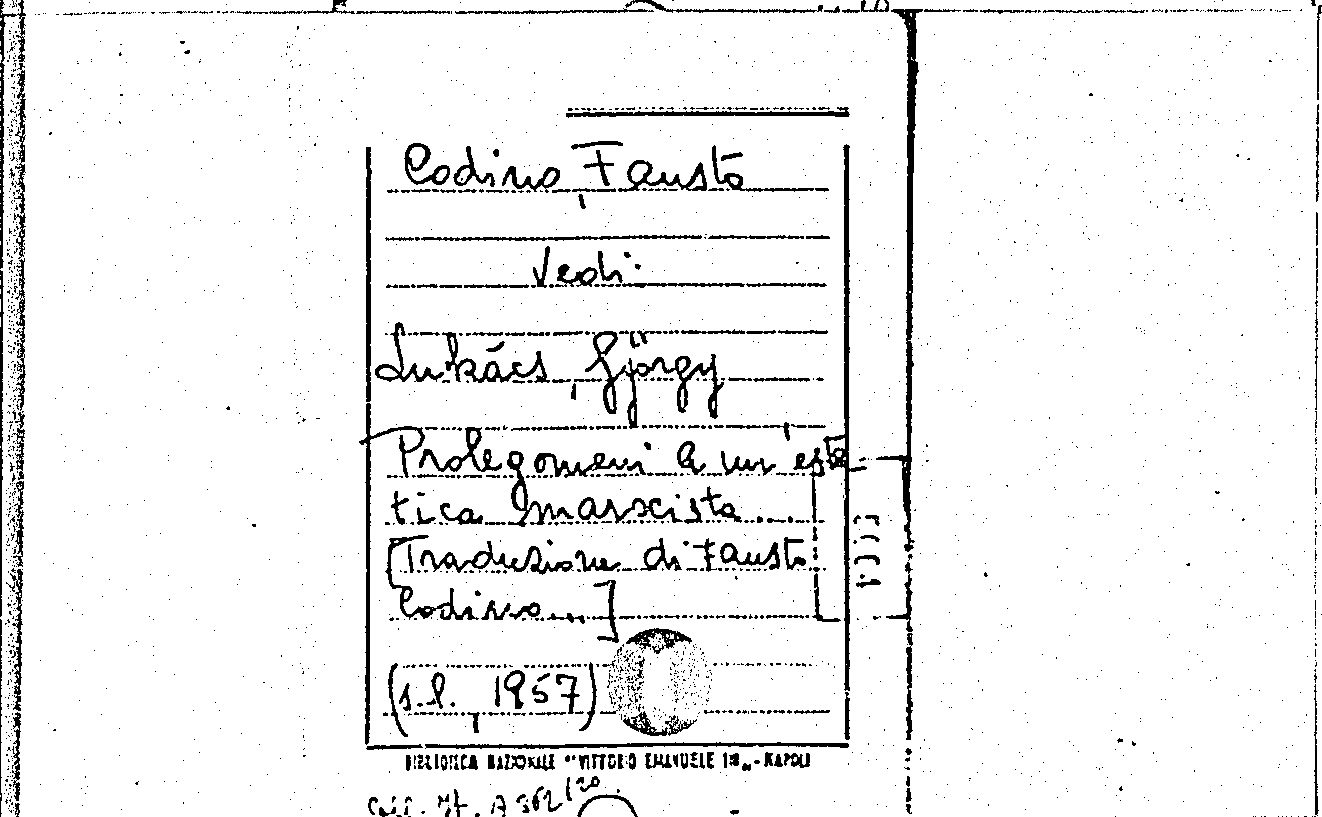 Codino, Fausto
Vedi:
Lukács, György
Prolegomeni a un'este
tica marxista...
[Traduzione di Fausto
Codino...]
(s.l., 1957)
BIBLIOTECA NAZIONALE "VITTORIO EMANUELE III" - NAPOLI
Coll. It. A 362/20